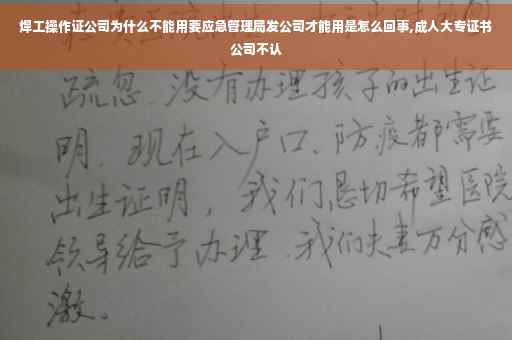 焊工操作证公司为什么不能用要应急管理局发公司才能用是怎么回事,成人大专证书
公司不认
疏忽.没有办理孩子的出生证
明.现在入户口、防疫都需要
出生证明，我们恳切希望医院
领导给予办理.我们夫妻万分感
激。